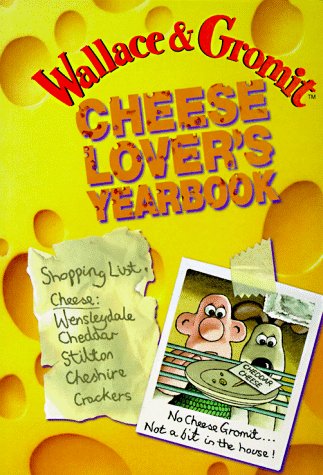 Wallace & Gromit™
CHEESE
LOVER'S
YEARBOOK
Shopping List.
Cheese:
Wensleydale
Cheddar
Stilton
Cheshire
Crackers
CHEDDAR
CHEESE
No Cheese Gromit...
Not a bit in the house!